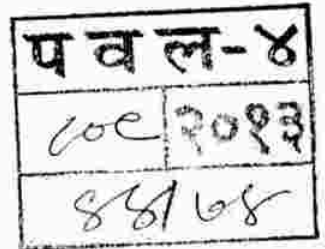 पवल-४
८०९ २०१३
४४/७४